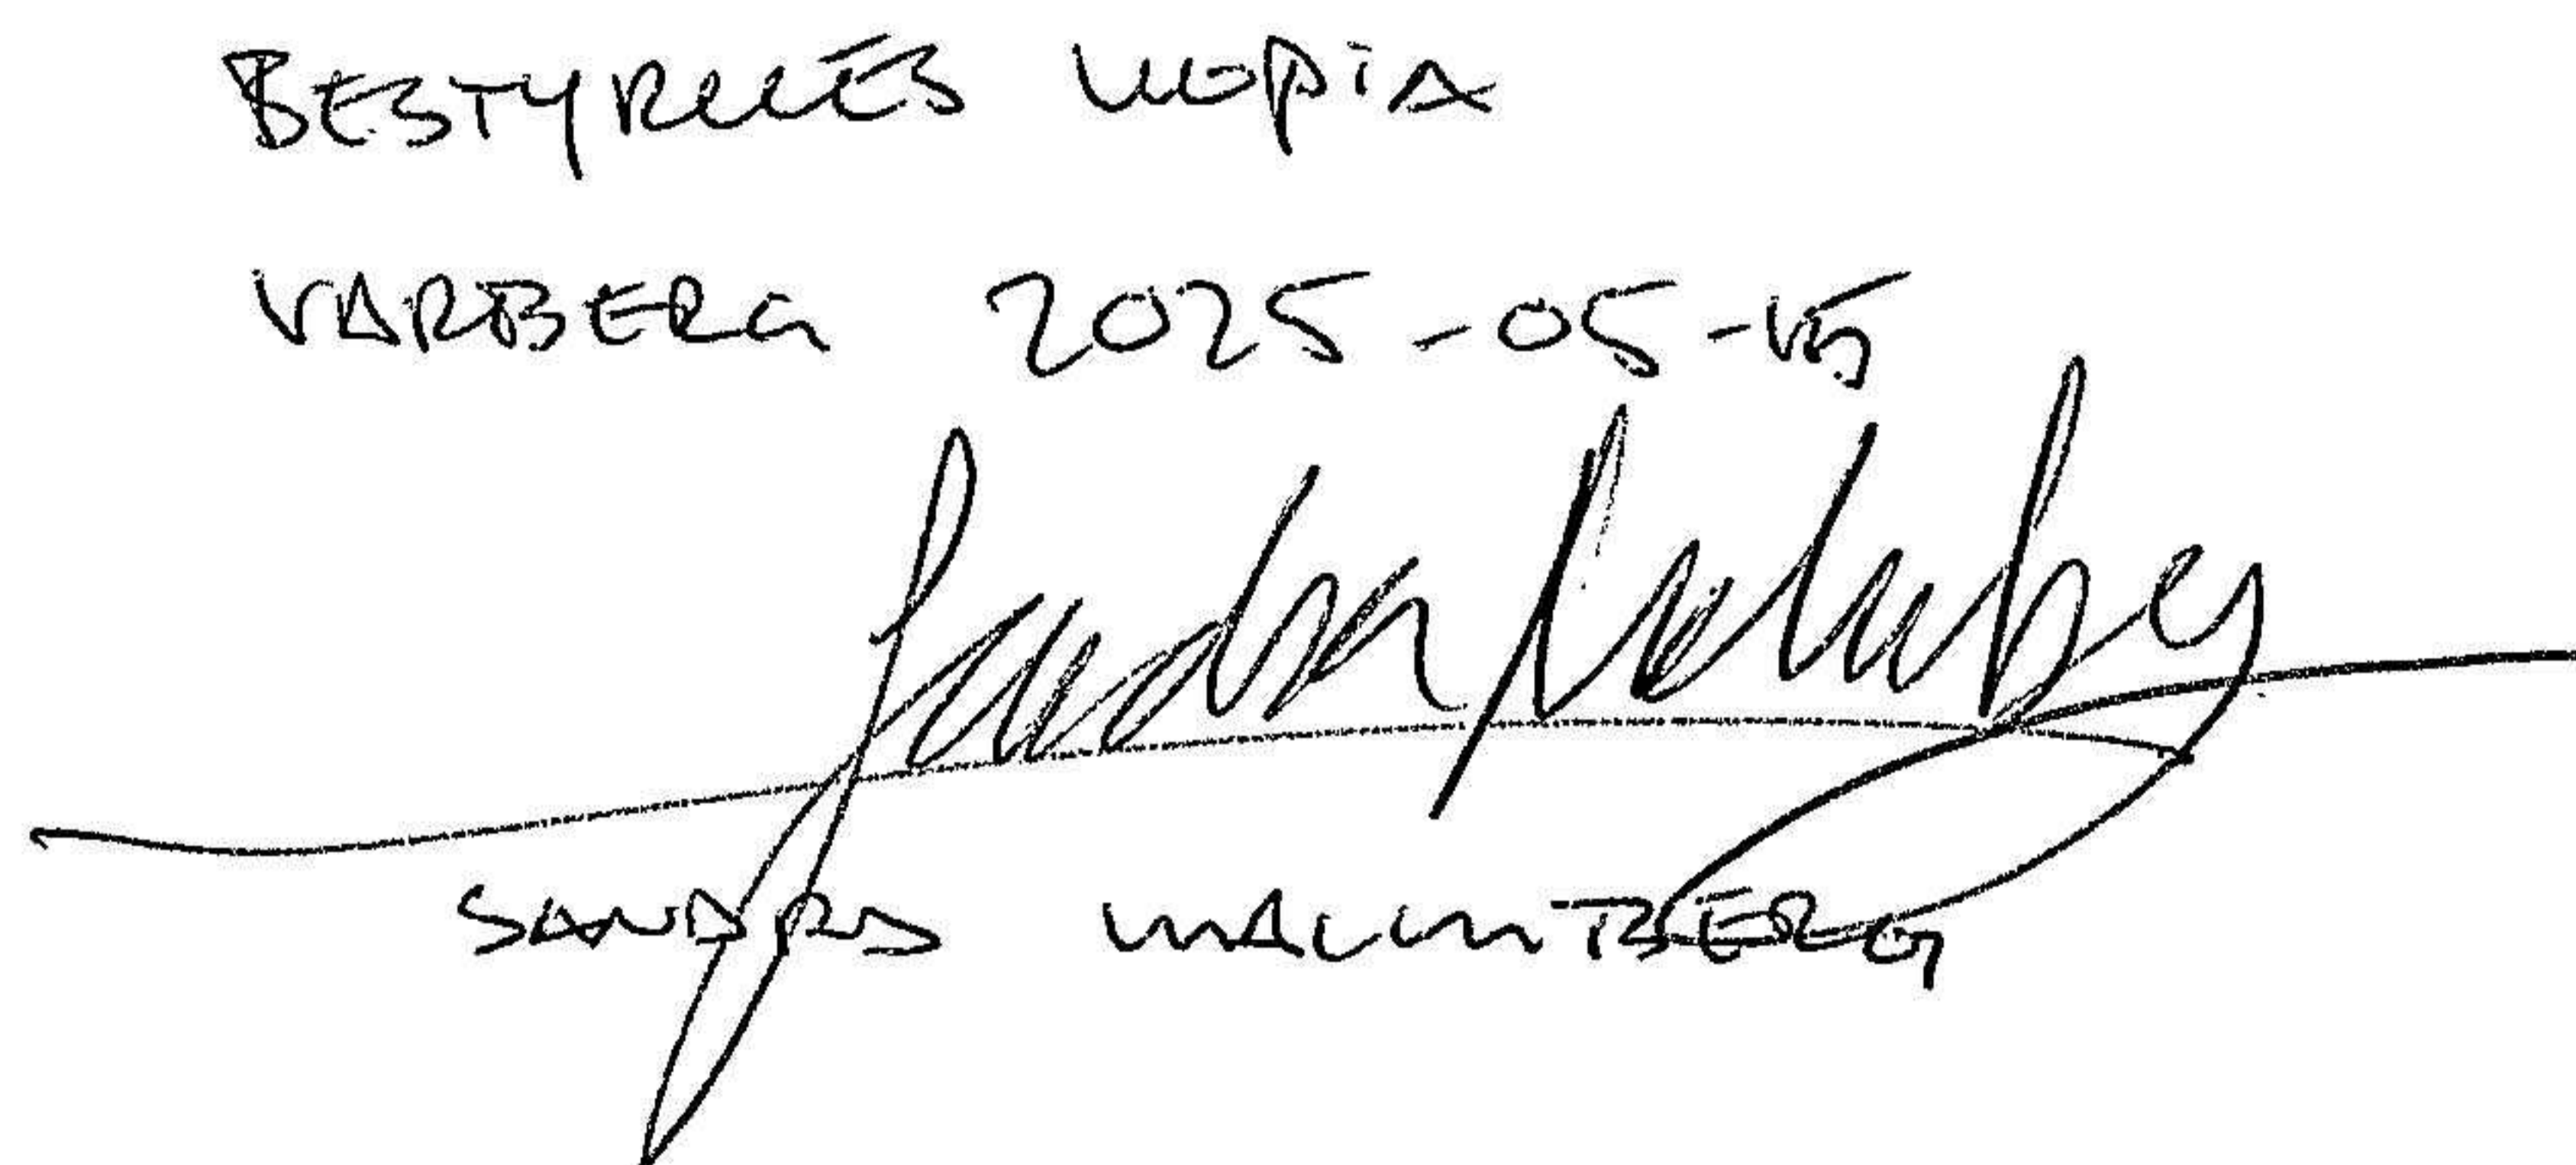 BESTYRKES KOPIA
VARBERG 2025-05-15
Sandra Malmberg
SANDRA MALMBERG